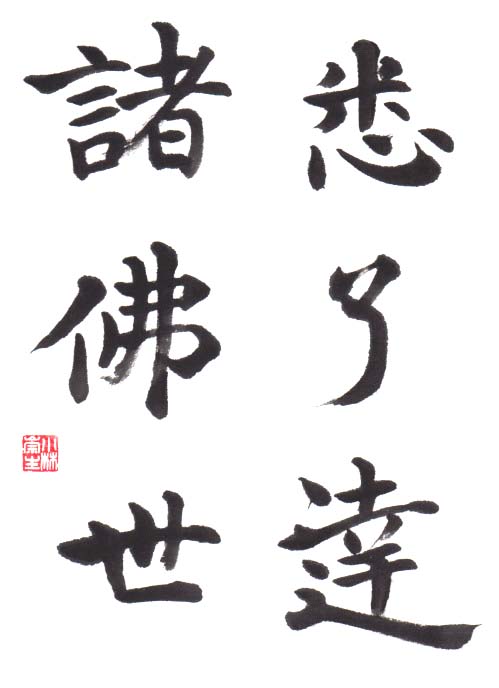 悉了達
諸佛世
小林